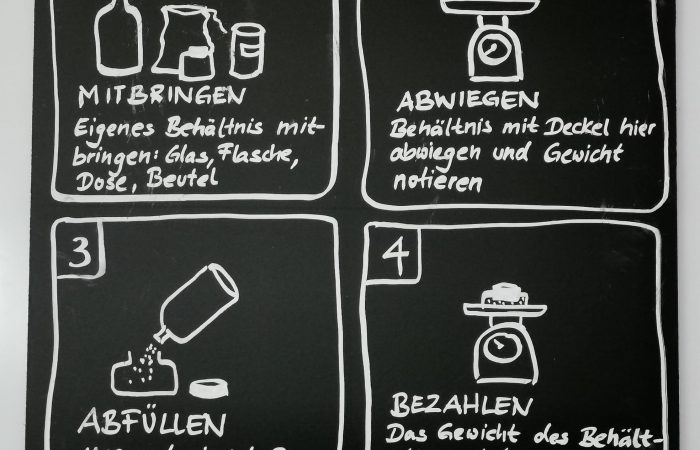 MITBRINGEN
Eigenes Behältnis mit-
bringen: Glas, Flasche,
Dose, Beutel
ABWIEGEN
Behältnis mit Deckel hier
abwiegen und Gewicht
notieren
3
ABFÜLLEN
4
BEZAHLEN
Das Gewicht des Behält-